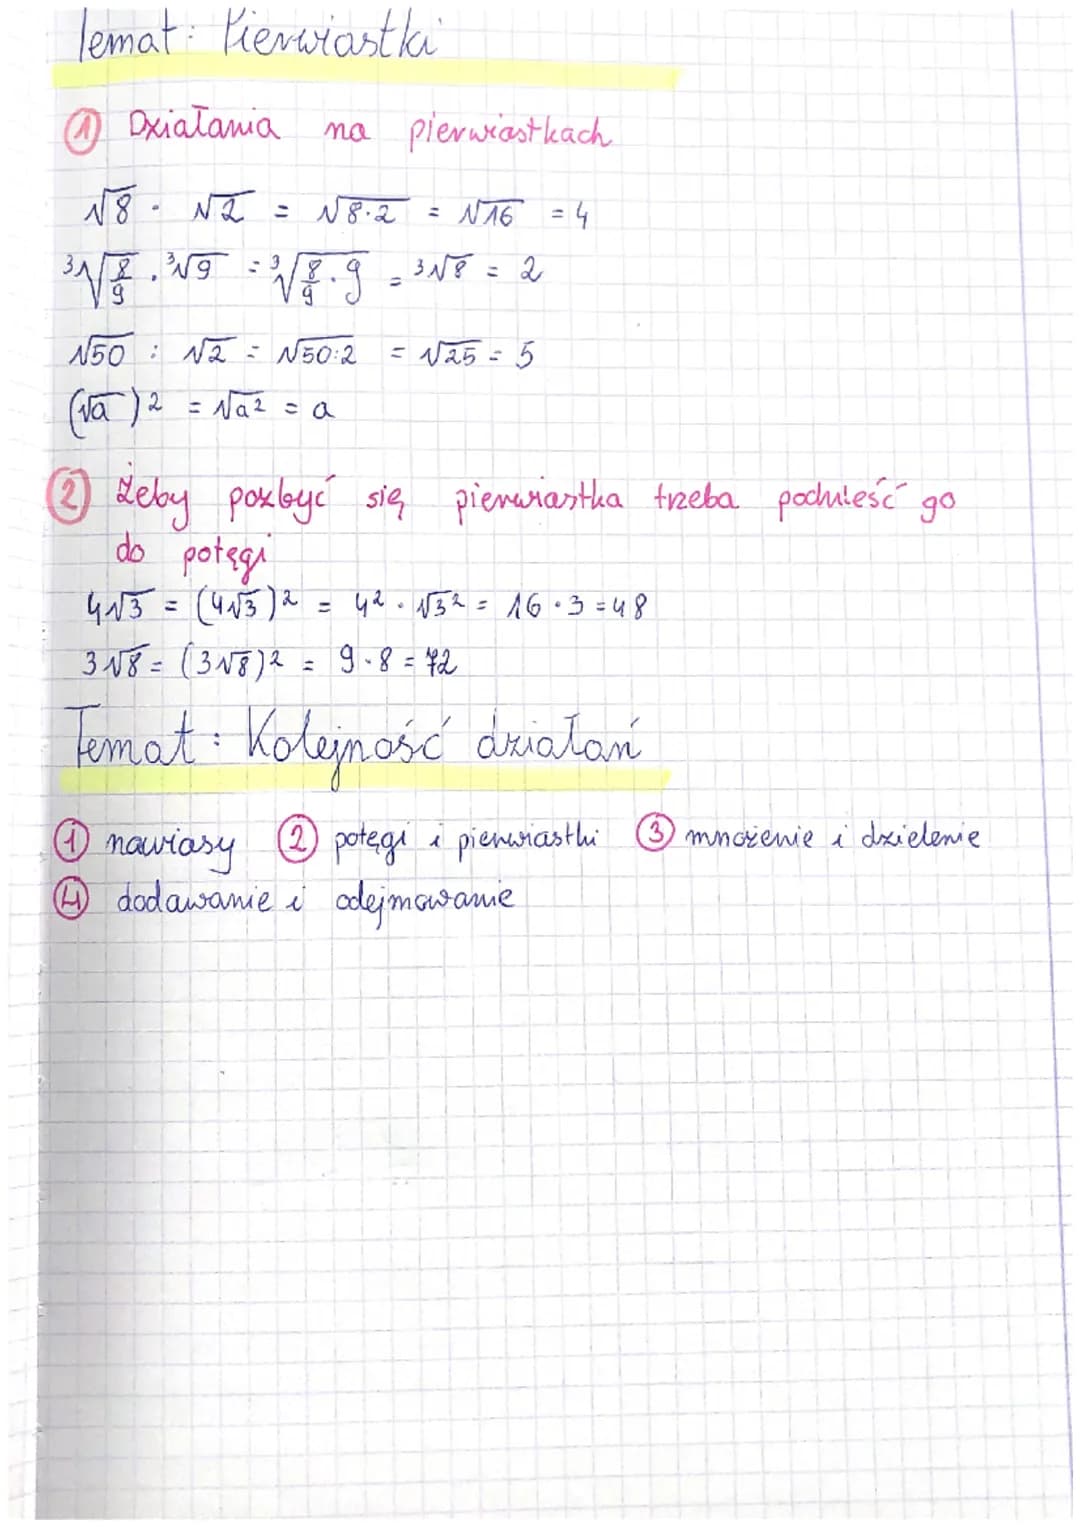 Temat: Pierwiastki
① Działania na pierwiastkach
√8 · √2 = √8·2 = √16 = 4
³√8/9 · ³√9 = ³√8/9 · 9 = ³√8 = 2
√50 : √2 = √50:2 = √25 = 5
(√a)² = √a² = a
② Żeby pozbyć się pierwiastka trzeba podnieść go
do potęgi
4√3 = (4√3)² = 4² · √3² = 16 · 3 = 48
3√8 = (3√8)² = 9 · 8 = 72
Temat: Kolejność działań
① nawiasy ② potęgi i pierwiastki ③ mnożenie i dzielenie
④ dodawanie i odejmowanie